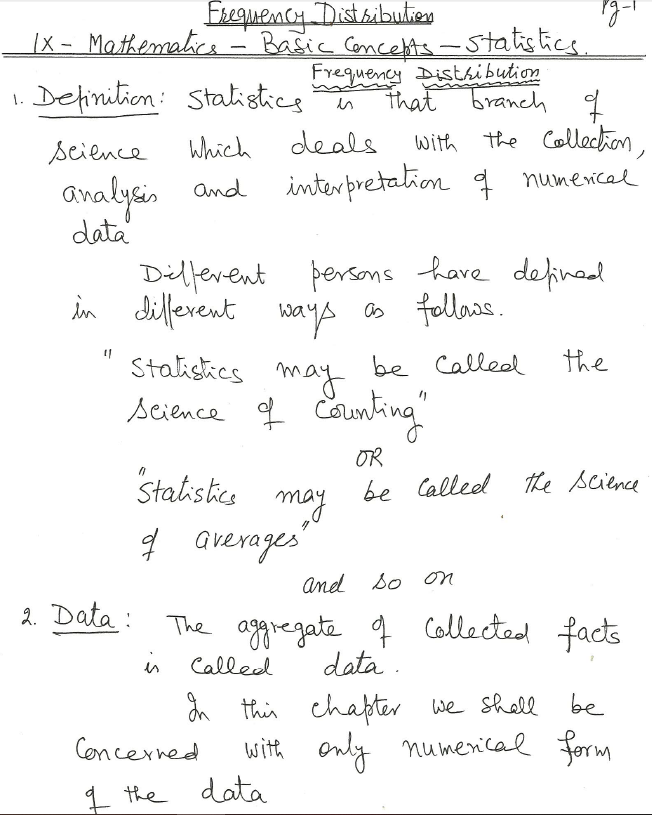 Frequency Distribution Pg-1
IX - Mathematics - Basic Concepts - Statistics.
Frequency Distribution
1. Definition: Statistics is that branch of
science which deals with the Collection,
analysis and interpretation of numerical
data
Different persons have defined
in different ways as follows.
"Statistics may be Called the
Science of Counting"
OR
"Statistics may be Called the Science
of averages"
and so on
2. Data: The aggregate of Collected facts
is Called data.
In this chapter we shall be
Concerned with only numerical form
of the data